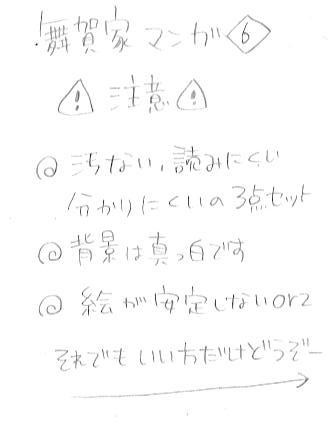 舞賀家マンガ6
⚠注意⚠
@汚ない,読みにくい
分かりにくいの3点セット
@背景は真っ白です
@絵が安定しないorz
それでもいい方だけどうぞー